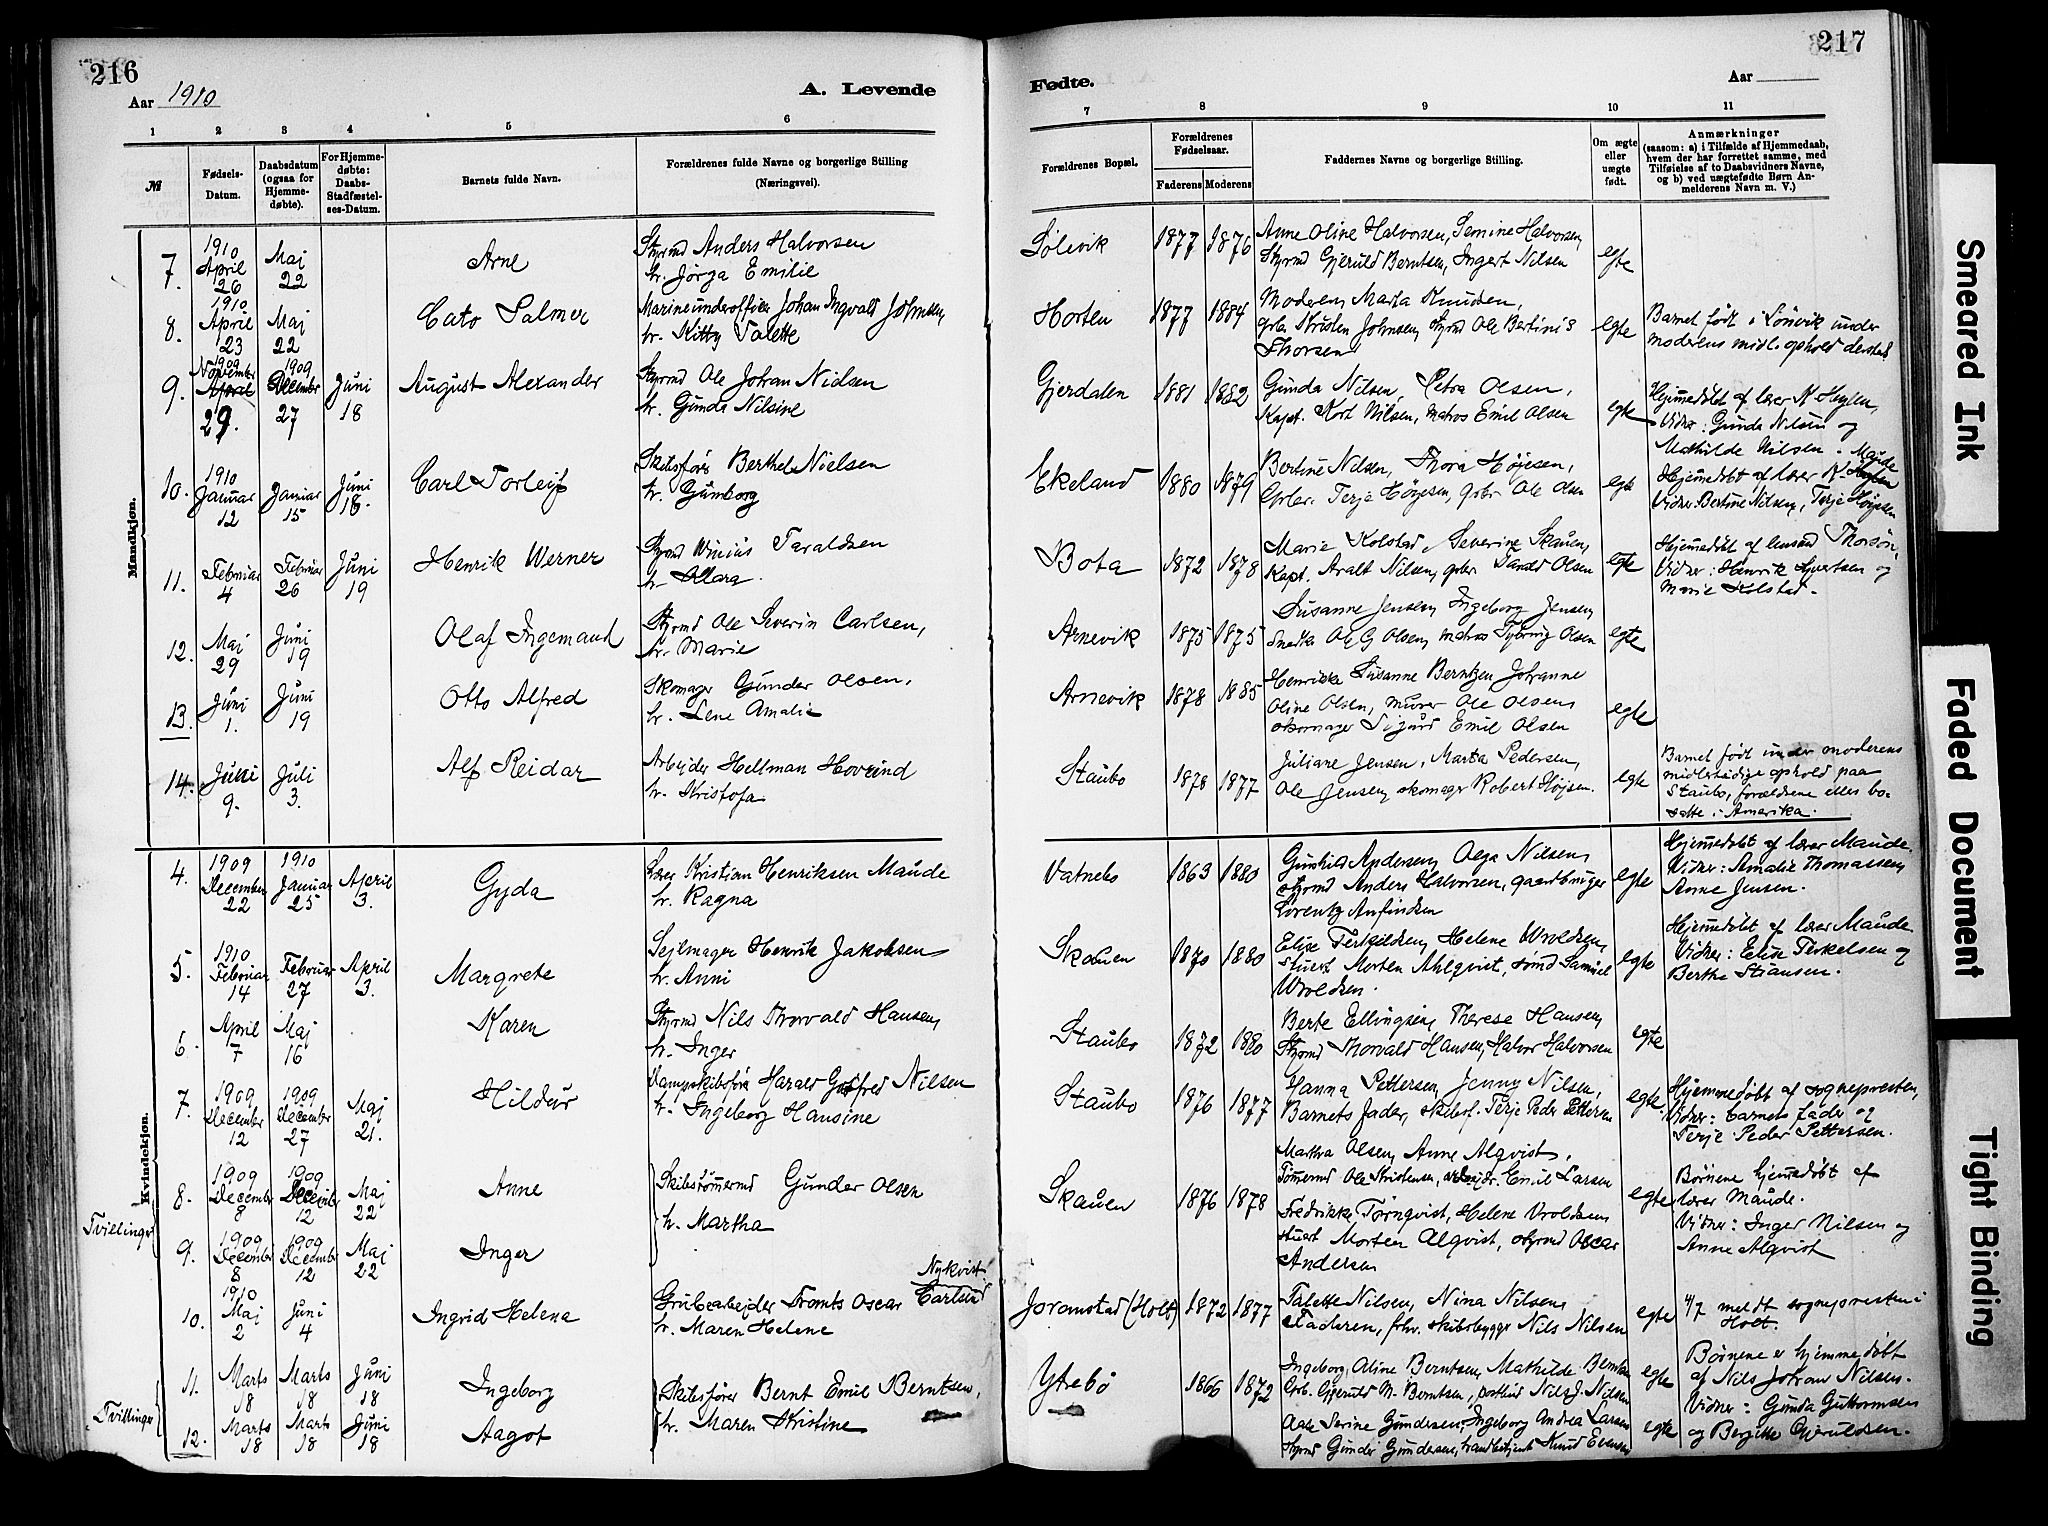 216
Aar 1910
A. Levende
1 2 3 4 5 6
№
Fødsels-Datum.
Daabsdatum (ogsaa for Hjemme-døbte).
For Hjemme-døbte: Daabs-Stadfæstel-ses-Datum.
Barnets fulde Navn.
Forældrenes fulde Navne og borgerlige Stilling
(Næringsvei).
Mandkjøn.
7. 1910 April 26 Maj 22 Arne Styrmd Anders Halvorsen
h. Jørga Emilie
8. 1910 April 23 Maj 22 Cato Salmer Marineunderofficer Johan Ingvald Johnsen
h. Kitty Talette
9. 1909 November 29. 1909 December 27 Juni 18 August Alexander Styrmd Ole Johan Nielsen
h. Gunda Nilsine
10. 1910 Januar 12 Januar 15 Juni 18 Carl Torleif Skibsfører Berthel Nielsen
h. Gunborg
11. Februar 4 Februar 26 Juni 19 Henrik Werner Styrmd Taraldsen
h. Clara.
12. Maj 29 Juni 19 Olaf Ingemand Styrmd Ole Severin Carlsen,
h. Marie
13. Juni 1. Juni 19 Otto Alfred Skomager Gunder Olsen.
h. Lene Amalie
14. Juni 9. Juli 3. Alf Reidar Arbejder Hellman Hovrind
h. Kristofa
Kvindekjøn.
4. 1909 December 22 1910 Januar 25 April 3. Gyda Lærer Kristian Henriksen Maude
h. Ragna
5. 1910 Februar 14 Februar 27 April 3. Margrete Sejlmager Henrik Jakobsen
h. Anni
6. April 7 Maj 16 Karen Styrmd Nils Thorvald Hansen,
h. Inger
7. 1909 December 12 1909 December 27 Maj 21. Hildur Dampskibsfører Harald Gotfred Nilsen
h. Ingeborg Hansine
Tvillinger
8. 1909 December 8 1909 December 12 Maj 22 Anne Skibstømermd Gunder Olsen
h. Martha
9. 1909 December 8 1909 December 12 Maj 22 Inger
10. 1910 Maj 2 Juni 4 Ingrid Helena Grubearbejder Fromts Oscar Carlsund Nykvist
h. Maren Helene
Tvillinger
11. Marts 18 Marts 18 Juni 18 Ingeborg Skibsfører Bernt Emil Berntsen,
h. Maren Kristine
12. Marts 18 Marts 18 Juni 18 Aagot
217
Fødte.
Aar
7 8 9 10 11
Forældrenes Bopæl.
Forældrenes Fødselsaar.
Faderens Moderens
Faddernes Navne og borgerlige Stilling.
Om ægte eller uægte født.
Anmærkninger
(saasom: a) i Tilfælde af Hjemmedaab,
hvem der har forrettet samme, med
Tilføielse af to Daabsvidners Navne,
og b) ved uægtefødte Børn An-
melderens Navn m. V.)
Sølevik 1877 1876 Anne Oline Halvorsen, Semine Halvorsen,
Styrmd Gjeruld Berntsen, Ingert Nilsen egte
Horten 1877 1884 Moderen, Marta Knudsen,
grbr Kristen Johnsen, styrmd Ole Bertinis
Thorsen egte Barnet født i Lønvik under
moderens midl. ophold dersted
Gjerdalen 1881 1882 Gunda Nilsen, Petra Olsen,
Kapt. Kort Nilsen, matros Emil Olsen egte Hjemmedøbt af lærer
Vidner: Gunda Nilsen og
Mathilde Nilsen.
Ekeland 1880 1879 Bertine Nilsen, Thora Højesen,
Grbr. Terje Højesen, grbr Ole Olsen egte Hjemmedøbt af lærer Maude
Vidner: Bertine Nilsen, Terje Højesen
Bota 1872 1878 Marie Kolstad, Severine Skauen,
Kapt. Aralt Nilsen, grbr Tarald Olsen egte Hjemmedøbt af Thorsøn,
Vidner: Henrik Syvertsen og
Marie Kolstad.
Arnevik 1875 1875 Susanne Jensen, Ingeborg Jensen,
Snedker Ole G Olsen, matros Olsen egte
Arnevik 1878 1885 Henrikke Susanne Berntzen, Johanne
Oline Olsen, murer Ole Olsen,
skomager Sigurd Emil Olsen egte
Staubo 1878 1877 Juliane Jensen, Marta Pedersen,
Ole Jensen, skomager Robert Højsen. egte Barnet født under moderens
midlertidige ophold paa
Staubo, forældrene ellers bo-
satte i Amerika.
Vatnebo 1863 1880 Gunhild Andersen, Olga Nilsen,
styrmd Anders Halvorsen, gaardbruger
Lorentz Anfindsen egte Hjemmedøbt af lærer Maude,
Vidner: Amalie Thomassen,
Anne Jensen.
Skauen 1870 1880 Elise Terkildsen, Helene Wroldsen,
stuert Morten Ahlqvist, sømd Samuel
Wroldsen. egte Hjemmedøbt af lærer Maude.
Vidner: Elise Terkelsen og
Berthe Stiansen.
Staubo 1872 1880 Berte Ellingsen, Therese Hansen,
Styrmd Thorvald Hansen, Halvor Halvorsen egte
Staubo 1876 1877 Hanna Pettersen, Jenny Nilsen,
Barnets fader, skibsf. Terje Peder Pettersen egte. Hjemmedøbt af sognepresten,
Vidner: barnets fader og
Terje Peder Pettersen.
Skauen 1876 1878 Martha Olsen, Anne Alqvist,
Tømermd Ole Kristensen, arbejdr. Emil Larsen
Fredrikke Tørnqvist, Helene Vroldsen,
stuert Morten Alqvist, styrmd Oscar
Andersen egte Børnene hjemmedøbt af
lærer Maude.
Vidner: Inger Nilsen og
Anne Alqvist
Joranstad (Holt) 1872 1877 Talette Nilsen, Nina Nilsen,
Faderen, forhv. skibsbygger Nils Nilsen egte 4/7 meldt sognepresten i
Holt.
Ytrebø 1866 1872 Ingeborg Aline Berntsen, Mathilde Berntsen
Grb. Gjeruld M. Berntsen, Nils J. Nilsen egte Børnene er hjemmedøbt
af Nils Johan Nilsen.
Vidner: Gunda Guttormsen
og Bergitte Gjeruldsen.
Aase Serine Gundersen, Ingeborg Andrea Larsen
Styrmd Gunder Gundersen, Knud Evensen egte
Smeared Ink
Faded Document
Tight Binding